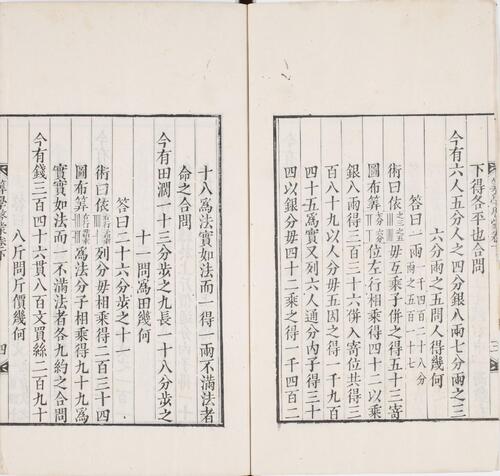 下得各平也合問
今有六人五分人之四分銀八兩七分兩之三
六分兩之五問人得幾何
答曰一兩千四百二十八分兩之五百一十七
術曰依之三之五毋互乘子併之得五十三寄
圖布筭位左行相乘得四十二以乘
銀八兩得三百三十六併入寄位共得三
百八十九以人分毋五因之得一千九百
四十五爲實又列六人通分內子得三十
四以銀分毋四十二乘之得一千四百二
十八爲法實如法而一得一兩不滿法者
命之合問
今有田濶一十三分步之九長一十八分步之
十一問爲田幾何
答曰二十六分步之十一
術曰依列分毋相乘得二百三十四
圖布筭爲法分子相乘得九十九爲
實實如法而一不滿法者各九約之合問
今有錢三百四十六貫八百文買絲二百九十
八斤問斤價幾何
四